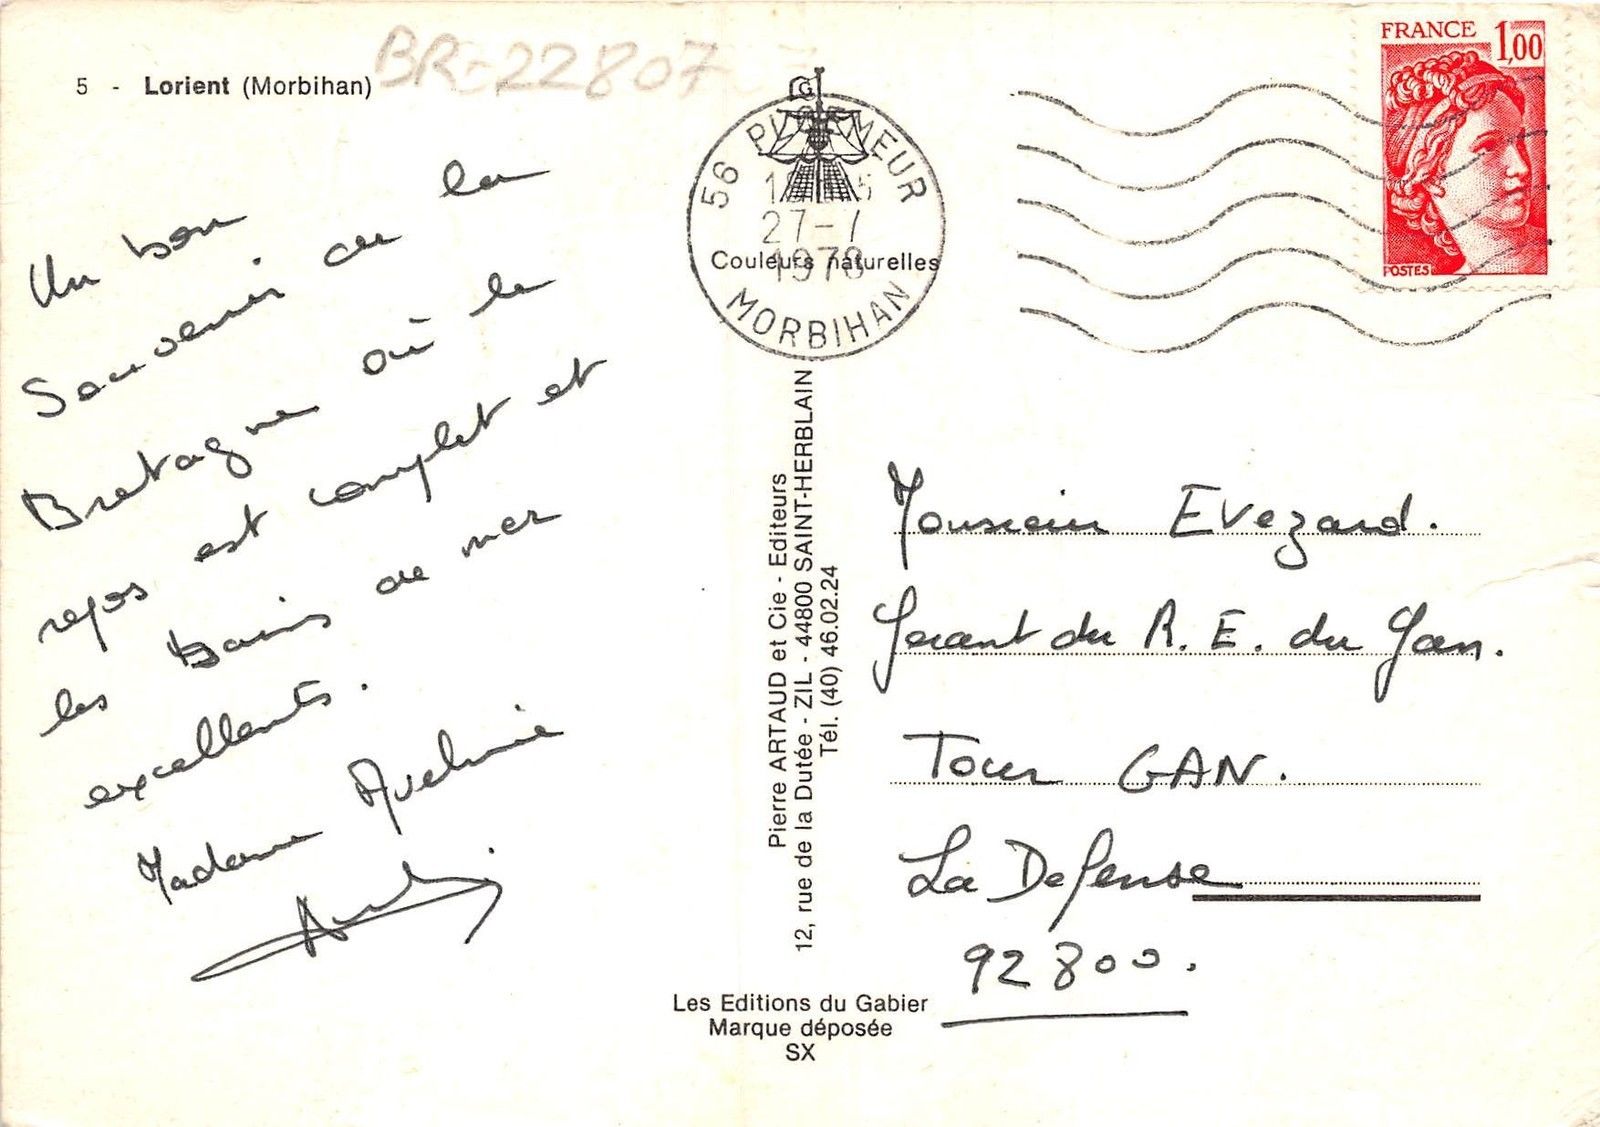 5 - Lorient (Morbihan)
BR-22807
Un bon
Souvenir de la
Bretagne où le
repos est complet et
les bains de mer
excellents.
Madame
G
56 PLOEMEUR
27-7
1978
MORBIHAN
Couleurs naturelles
Pierre ARTAUD et Cie - Editeurs
12, rue de la Dutée - ZIL - 44800 SAINT-HERBLAIN
Tél. (40) 46.02.24
Les Editions du Gabier
Marque déposée
SX
FRANCE 1,00
POSTES
Monsieur Evezard.
Gerant du R. E. du Gan.
Tour GAN.
La Defense
92800.